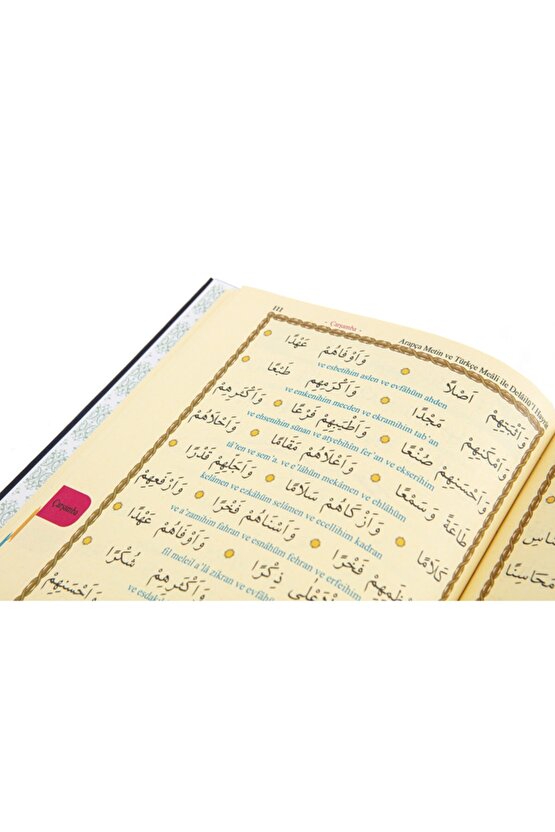 111
Çarşamba
Arapça Metin ve Türkçe Meâli ile Delâilü'l Hayrât
وَاَثْبَتِهِمْ اَصْلًا وَاَوْفَاهُمْ عَهْدًا
ve esbetihim aslen ve evfâhüm ahden
وَاَمْكَنِهِمْ مَجْدًا وَاَكْرَمِهِمْ طَبْعًا
ve emkenihim mecden ve ekramihim tab'an
وَاَحْسَنِهِمْ صُنْعًا وَاَطْيَبِهِمْ فَرْعًا وَاَكْثَرِهِمْ
ve ehsenihim sünan ve atyebihim fer'an ve ekserihim
طَاعَةً وَسَمْعًا وَاَعْلَاهُمْ مَقَامًا وَاَحْلَاهُمْ
tâ'ten ve sem'a. ve e'lâhüm mekâmen ve ehlâhüm
كَلَامًا وَاَزْكَاهُمْ سَلَامًا وَاَجَلِّهِمْ قَدْرًا
kelâmen ve ezkâhüm selâmen ve ecellihim kadran
فَخْرًا وَاَسْنَاهُمْ فَخْرًا وَاَرْفَعِهِمْ
ve a'zamihim fahran ve esnâhüm fehran ve erfeihim
ذِكْرًا وَاَوْفَاهُمْ عَهْدًا
fil meleil a'lâ zikran ve evfâhüm
وَاَكْثَرِهِمْ شُكْرًا
ve esdak
وَاَحْسَنِهِمْ
Çarşamba
مَحَاسِنًا